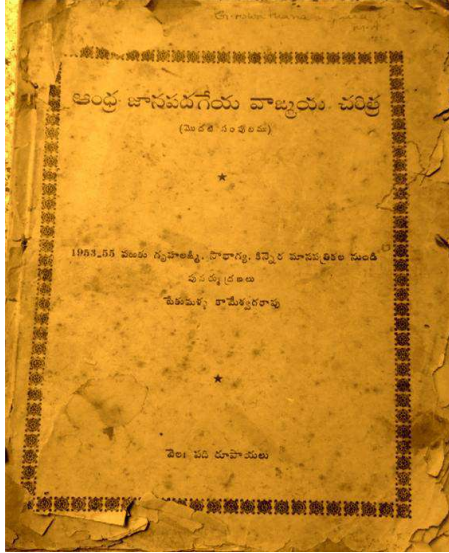 ఆంధ్ర జానపదగేయ వాఙ్మయ చరిత్ర
(మొదటి సంపుటము)
1953-55 వఱకు గృహలక్ష్మి, సౌభాగ్య, కిన్నెర మాసపత్రికల నుండి
పునర్ముద్రణలు
పేకుమళ్ళ కామేశ్వరరావు
వెల: పది రూపాయలు